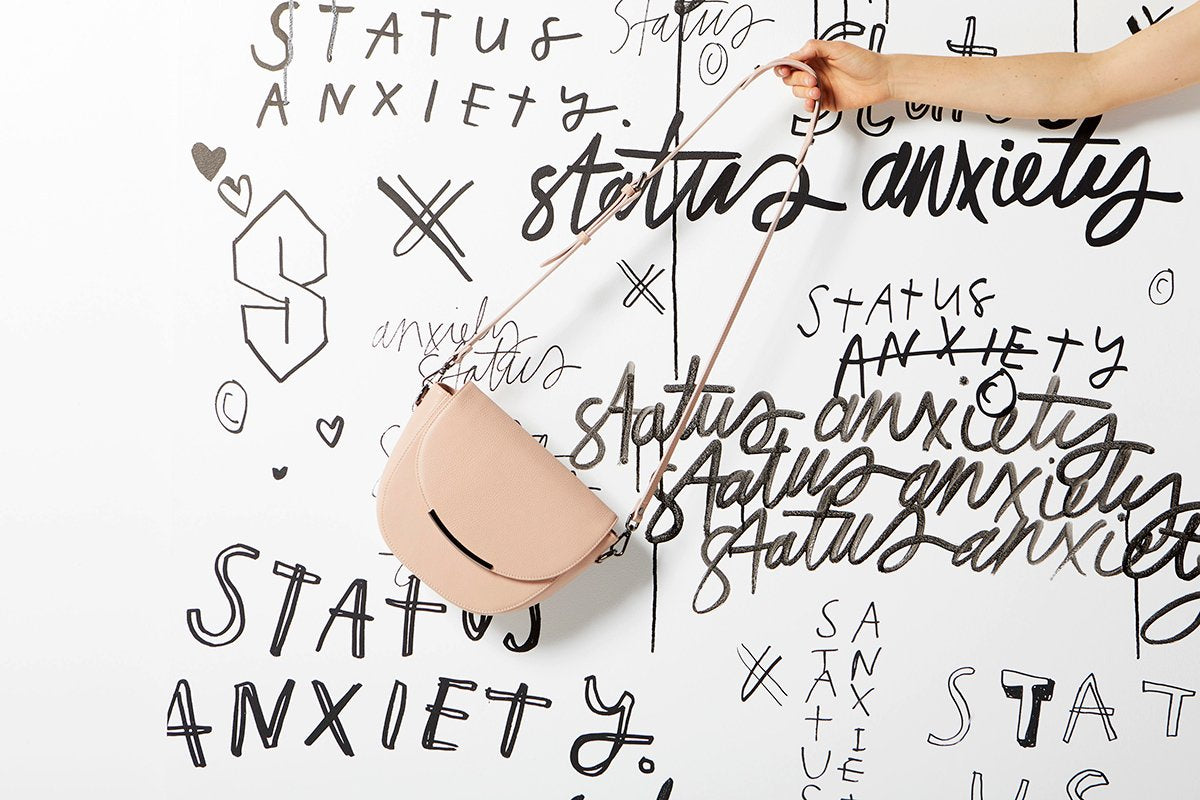 STATUS
ANXIEty.
Status
©
status anxiety
STATUS
ANXIEty
©
©
anxiety
status
©
status anxiety
status anxiety
status anxiety
STATUS
ANXIETy.
STATUS
ANXIEt
STAT
US